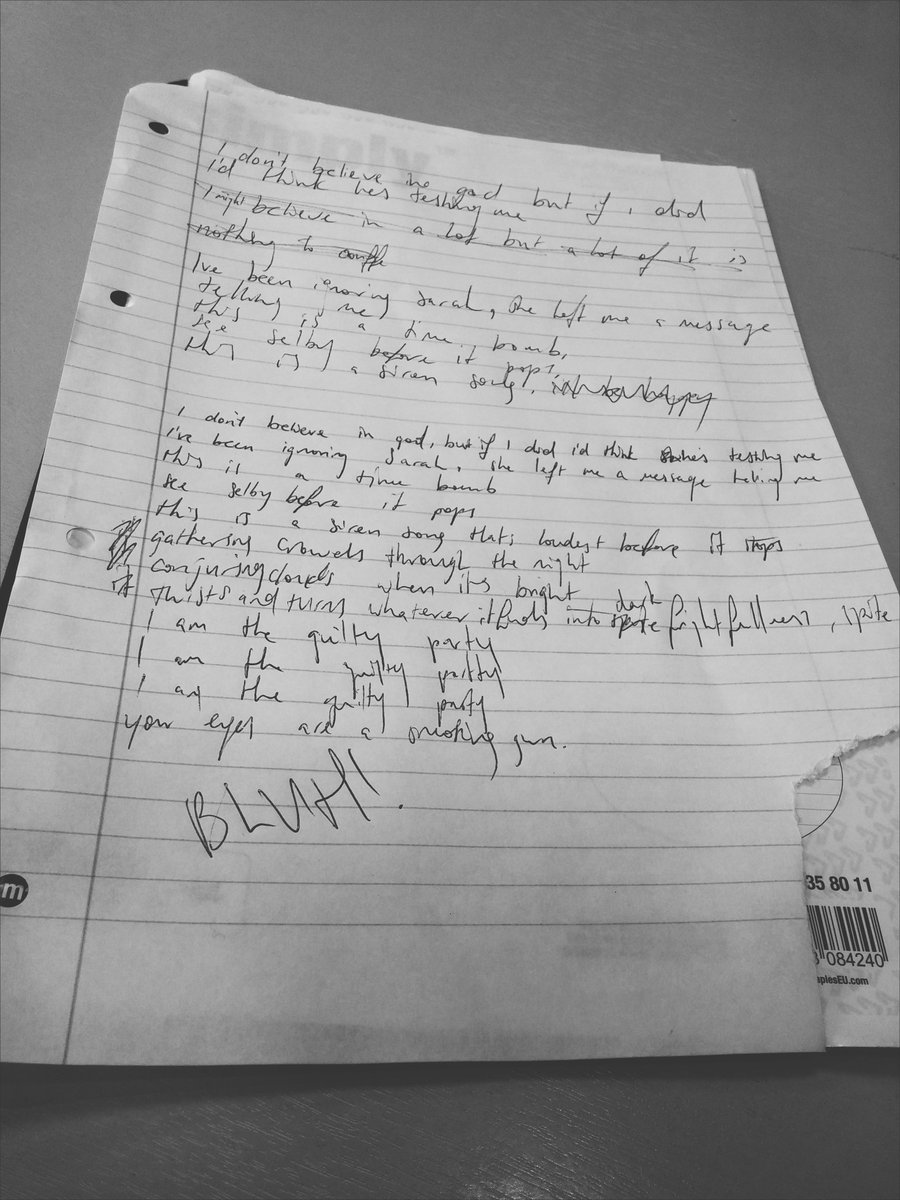 I don't believe in god but if i did
i'd think hes testing me
I might believe in a lot but a lot of it is
nothing to
I've been ignoring Sarah, She left me a message
telling me
this is a time bomb,
see selby before it pops,
this is a siren song.
I don't believe in god, but if I did i'd think hes testing me
I've been ignoring Sarah, she left me a message telling me
this is a time bomb
see selby before it pops
this is a siren song thats loudest before it stops
gathering crowds through the night
conjuring clouds when its bright
it twists and turns whatever it finds into dark frightfullness, spite
I am the guilty party
I am the guilty party
I am the guilty party
your eyes are a smoking gun.
BLUH!
m
35 80 11
084240
plesEU.com